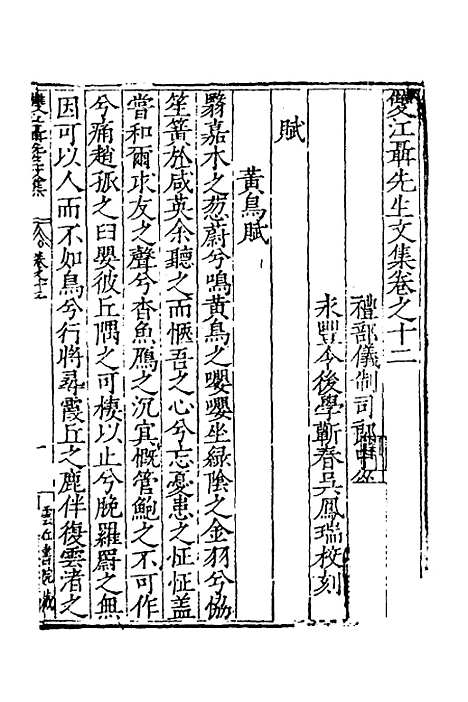 雙江聶先生文集卷之十二
禮部儀制司郎中
永豐令後學蘄春吳鳳瑞校刻
賦
黃鳥賦
翳嘉木之葱蔚兮鳴黃鳥之嚶嚶坐綠陰之金羽兮恊
笙簧於咸英余聽之而愜吾之心兮忘憂患之怔怔蓋
嘗和爾求友之聲兮杳魚鴈之沉冥慨管鮑之不可作
兮痛趙孤之臼嬰彼丘隅之可棲以止兮脫羅罻之無
因可以人而不如鳥兮行將尋霞丘之鹿伴復雲渚之
雙江聶先生文集
卷之十二
一
雲丘書院藏